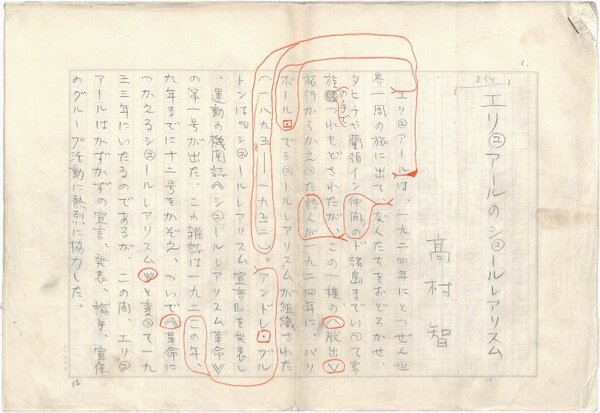 エリュアールのシュールレアリスム
高村 智
エリュアールは、一九二四年にとつぜん世
界一周の旅に出て、友人たちをおどろかせ、
タヒチや蘭領イン仲間のド諸島までいって家
族の手でつれもどされたが、この一種の〈脱出〉
旅行からかえった詩人が一九二四年に、パリ
ポール・でシュールレアリスムが組織された
(一八九五―一九五二)。アンドレ・ブル
トンは『シュールレアリスム宣言』を発表し
、運動の機関誌〈シュールレアリスム革命〉
の第一号が出た。この雑誌は一九二この年、
九年までに十二号をかぞえ、ついで〈革命に
つかえるシュールレアリスム〉と変って一九
三三年にいたるのであるが、この間、エリュ
アールはかずかずの宣言、発表、論争、宣伝
のグループ活動に熱烈に協力した。